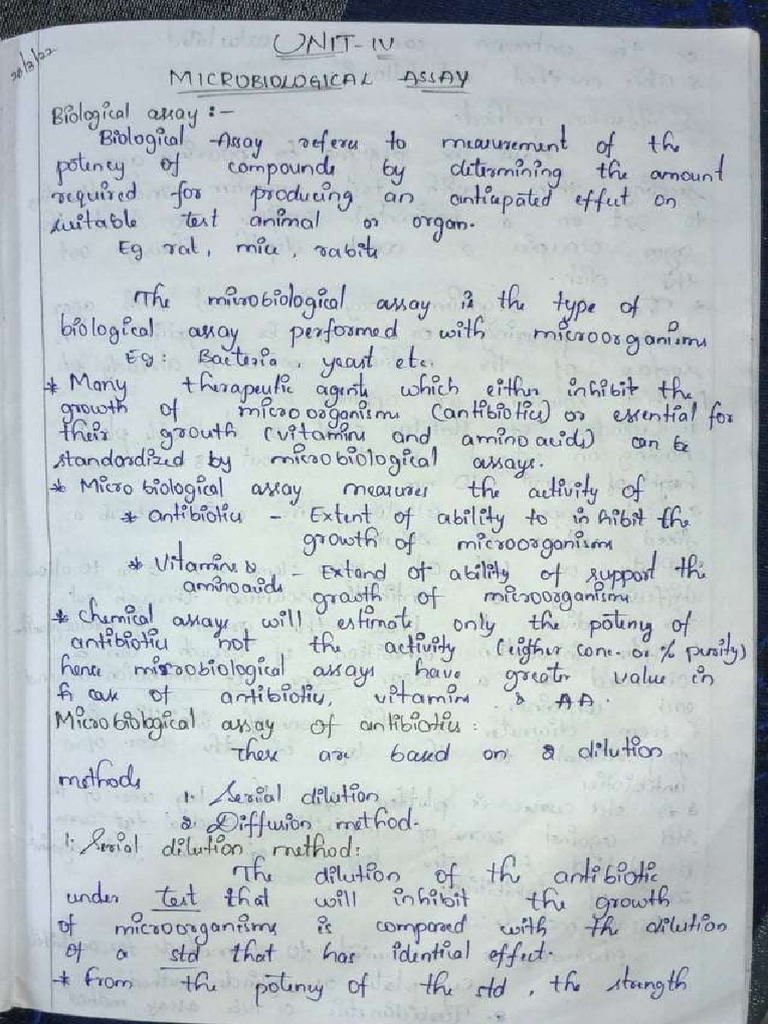 28/3/22
UNIT-IV
MICROBIOLOGICAL ASSAY
Biological assay :-
Biological Assay refers to measurement of the
potency of compounds by determining the amount
required for producing an anticapated effect on
suitable test animal or organ.
Eg rat, mice, rabits
The microbiological assay is the type of
biological assay performed with microorganisms
Eg: Bacteria, yeast etc.
* Many therapeutic agents which either inhibit the
growth of microorganisms (antibiotics) or essential for
their growth (vitamins and aminoacids) can be
standardized by microbiological assays.
* Microbiological assay measures the activity of
* antibiotics - Extent of ability to inhibit the
growth of microorganisms
* Vitamins &
aminoacids - Extend of ability of support the
growth of microorganisms
* Chemical assays will estimate only the potency of
antibiotics not the activity (eigher conc. or % purity)
hence microbiological assays have greater value in
case of antibiotics, vitamins & AA.
Microbiological assay of antibiotics :
These are based on 2 dilution
methods
1. Serial dilution
2. Diffusion method.
1. Serial dilution method:
The dilution of the antibiotic
under test that will inhibit the growth
of microorganisms is compared with the dilution
of a std that has identical effect.
* From the potency of the std, the strength